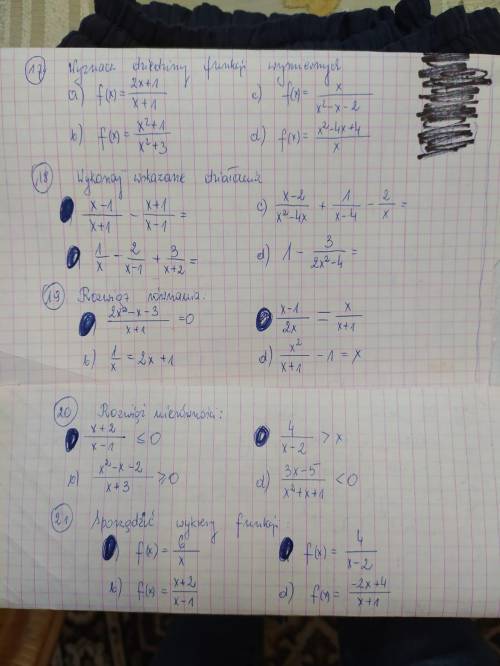 17. Wyznacz dziedziny funkcji wymiernych
a) f(x) = \frac{2x+1}{x+1} c) f(x) = \frac{x}{x²-x-2}
b) f(x) = \frac{x²+1}{x²+3} d) f(x) = \frac{x²-4x+4}{x}
18 Wykonaj wskazane działania
\frac{x-1}{x+1} - \frac{x+1}{x-1} = c) \frac{x-2}{x²-4x} + \frac{1}{x-4} - \frac{2}{x} =
\frac{1}{x} - \frac{2}{x-1} + \frac{3}{x+2} = d) 1 - \frac{3}{2x²-4} =
19 Rozwiąż równania:
\frac{2x²-x-3}{x+1} = 0 \frac{x-1}{2x} = \frac{x}{x+1}
b) \frac{1}{x} = 2x+1 d) \frac{x²}{x+1} - 1 = x
20 Rozwiąż nierówności:
\frac{x+2}{x-1} ≤ 0 \frac{4}{x-2} > x
b) \frac{x²-x-2}{x+3} ≥ 0 d) \frac{3x-5}{x²+x+1} < 0
21 Sporządzić wykresy funkcji:
) f(x) = \frac{6}{x} ) f(x) = \frac{4}{x-2}
b) f(x) = \frac{x+2}{x-1} d) f(x) = \frac{-2x+4}{x+1}